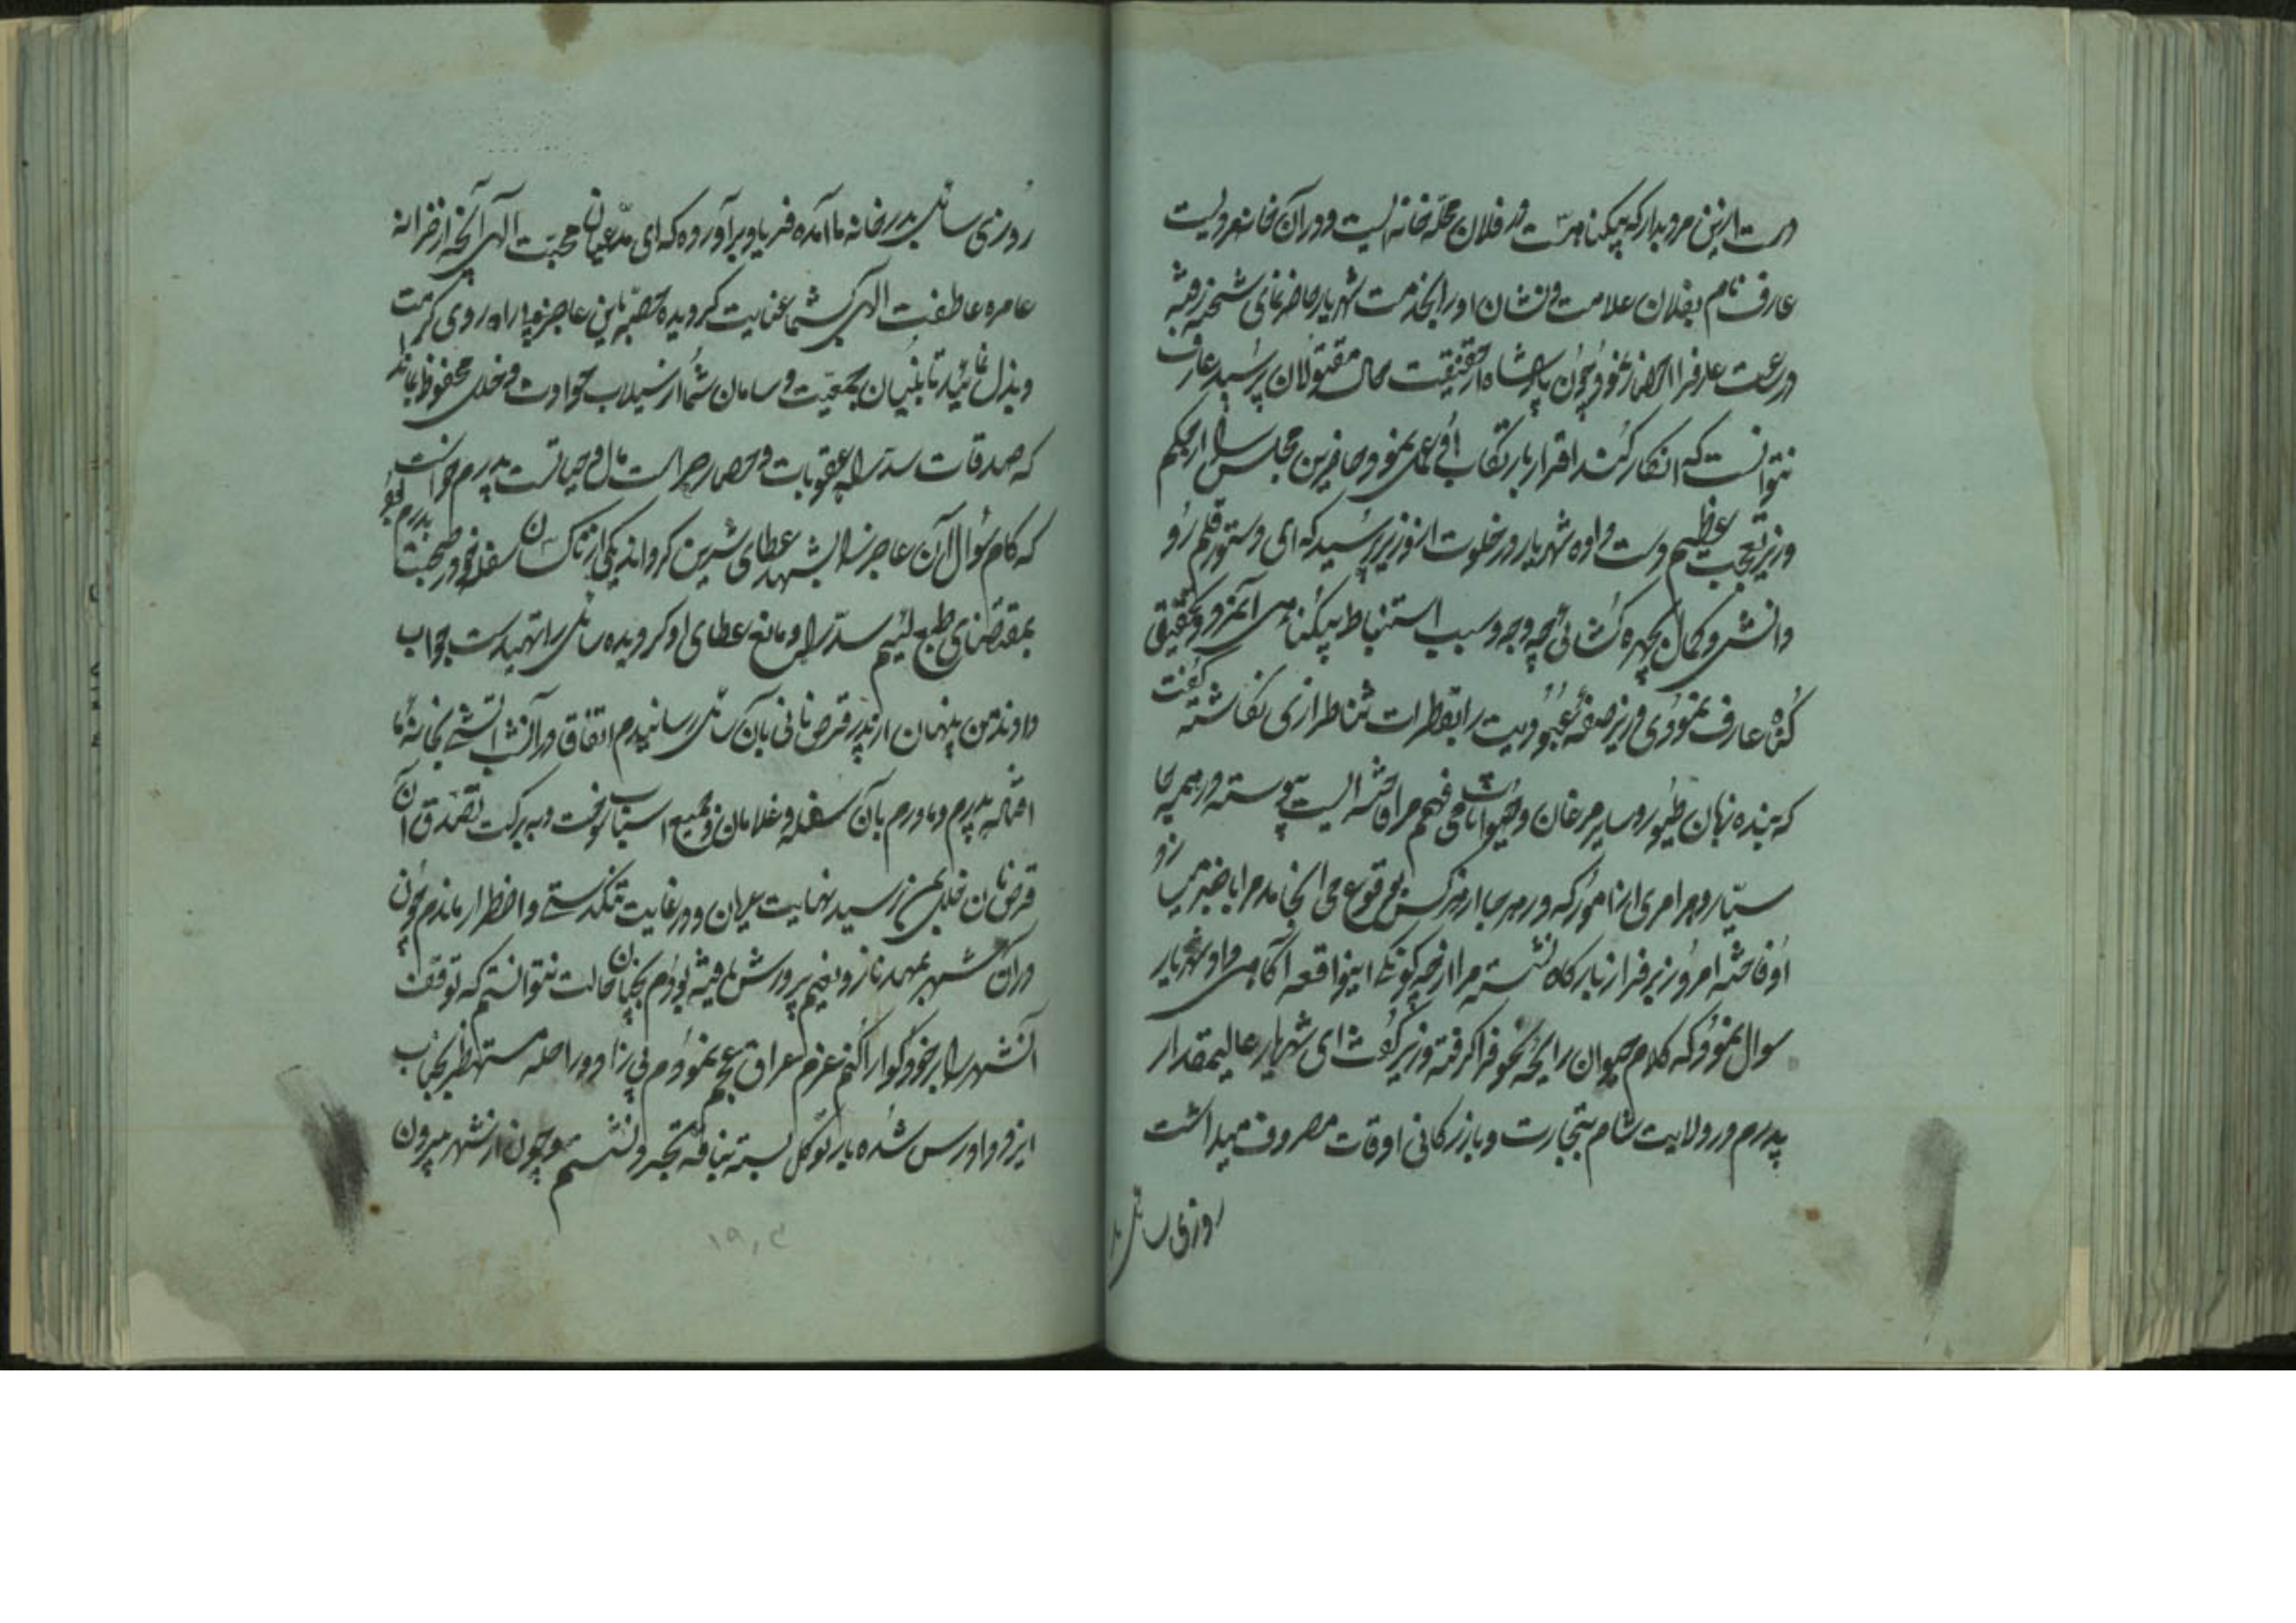 دست ازین مرد بدار که بیگناهست در فلان محله خانه ایست و در آن خانه مردیست
عارف نام بفلان علامت و نشان او را بخدمت شهریار حاضر نمای شحنه رفته
در ساعت عارف را احضار نمود و چون پادشاه از حقیقت حال مقتولان پرسید عارف
نتوانست که انکار کند اقرار بارتکاب آن عمل نمود و حاضرین مجلس را از حکم
وزیر تعجب عظیم دست داده شهریار در خلوت از وزیر پرسید که ای دستور قلمرو
دانش و کمال بچهره گشائی چه وجه و سبب استنباط بیگناهی آنمرد و تحقیق
گناه عارف نمودی وزیر صفحه عبودیت را بقطرات ثناطرازی نگاشته گفت
که بنده زبان طیور و سایر مرغان و حیوانات می فهمم مرا فاخته ایست پیوسته در همه جا
سیار و هر امری از امور که در هر جا از هر کس بوقوع می انجامد مرا باخبر میسازد
او فاخته امروز بر فراز بارگاه نشسته مرا از چگونگی اینواقعه آگاهی داد شهریار
سوال نمود که کلام حیوان را بچه نحو فرا گرفته وزیر گفت ای شهریار عالیمقدار
پدرم در ولایت شام بتجارت و بازرگانی اوقات مصروف میداشت
روزی سائلی بدر
روزی سائلی بدر خانه ما آمده فریاد برآورده که ای مدعیان محبت الهی آنچه از خزانه
عامره عاطفت الهی بشما عنایت گردیده حصه باین عاجز بینوا از راه روی کرمت
و بذل نمائید تا بنیان جمعیت و سامان شما از سیلاب حوادث و خلل محفوظ بماند
که صدقات سد راه عقوبات و حصار حراست مال و حیاتست پدرم خواست
که کام سؤال آن عاجز را بشهد عطای شیرین کرداند یکی از ناکسان سفله که در صحبت پدرم بود
بمقتضای طبع لئیم سد راه و مانع عطای او گردیده سائل را تهیدست جواب
دادند من پنهان از پدر قرص نانی بآن سائل رسانیدم اتفاقا در آنشب آتشی بخانه ما
افتاده پدرم و مادرم بآن سفله و غلامان و جمیع اسباب سوخت و ببرکت تصدق آن
قرص نان خللی بمن نرسید نهایت عریان و در غایت تنگدستی و اضطرار ماندم چون
در آن شهر بمهد ناز و نعیم پرورش یافته بودم بچنان حالت نتوانستم که توقف
آنشهر را بر خود گوارا کنم عزم عراق عجم نمودم بی زاد و راحله مستظهر بجناب
ایزد دادرس شده بار توکل بسته بناقه تجرد نشستم و چون از شهر بیرون